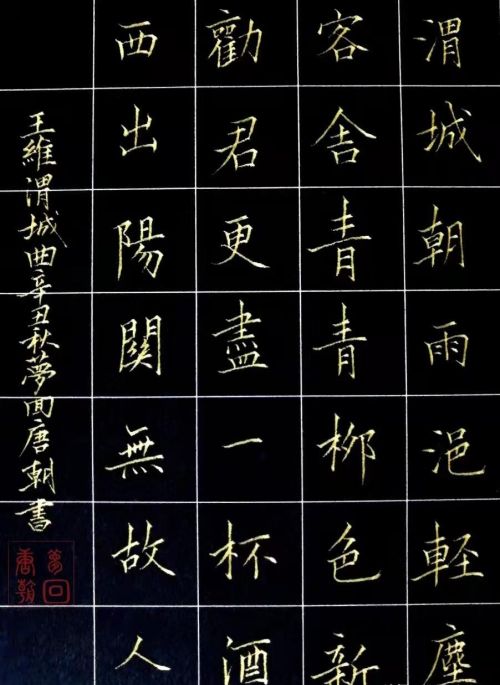 渭城朝雨浥輕塵
客舍青青柳色新
勸君更盡一杯酒
西出陽關無故人
王維渭城曲辛丑秋夢回唐朝書
夢回唐朝